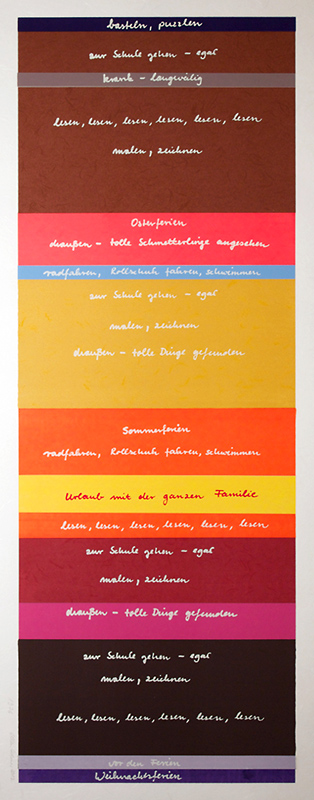 basteln, puzzlen
zur Schule gehen – egal
krank – langweilig
lesen, lesen, lesen, lesen, lesen, lesen
malen, zeichnen
Osterferien
draußen – tolle Schmetterlinge angesehen
radfahren, Rollschuh fahren, schwimmen
zur Schule gehen – egal
malen, zeichnen
draußen – tolle Dinge gefunden
Sommerferien
radfahren, Rollschuh fahren, schwimmen
Urlaub mit der ganzen Familie
lesen, lesen, lesen, lesen, lesen, lesen
zur Schule gehen – egal
malen, zeichnen
draußen – tolle Dinge gefunden
zur Schule gehen – egal
malen, zeichnen
lesen, lesen, lesen, lesen, lesen, lesen
vor den Ferien
Weihnachtsferien